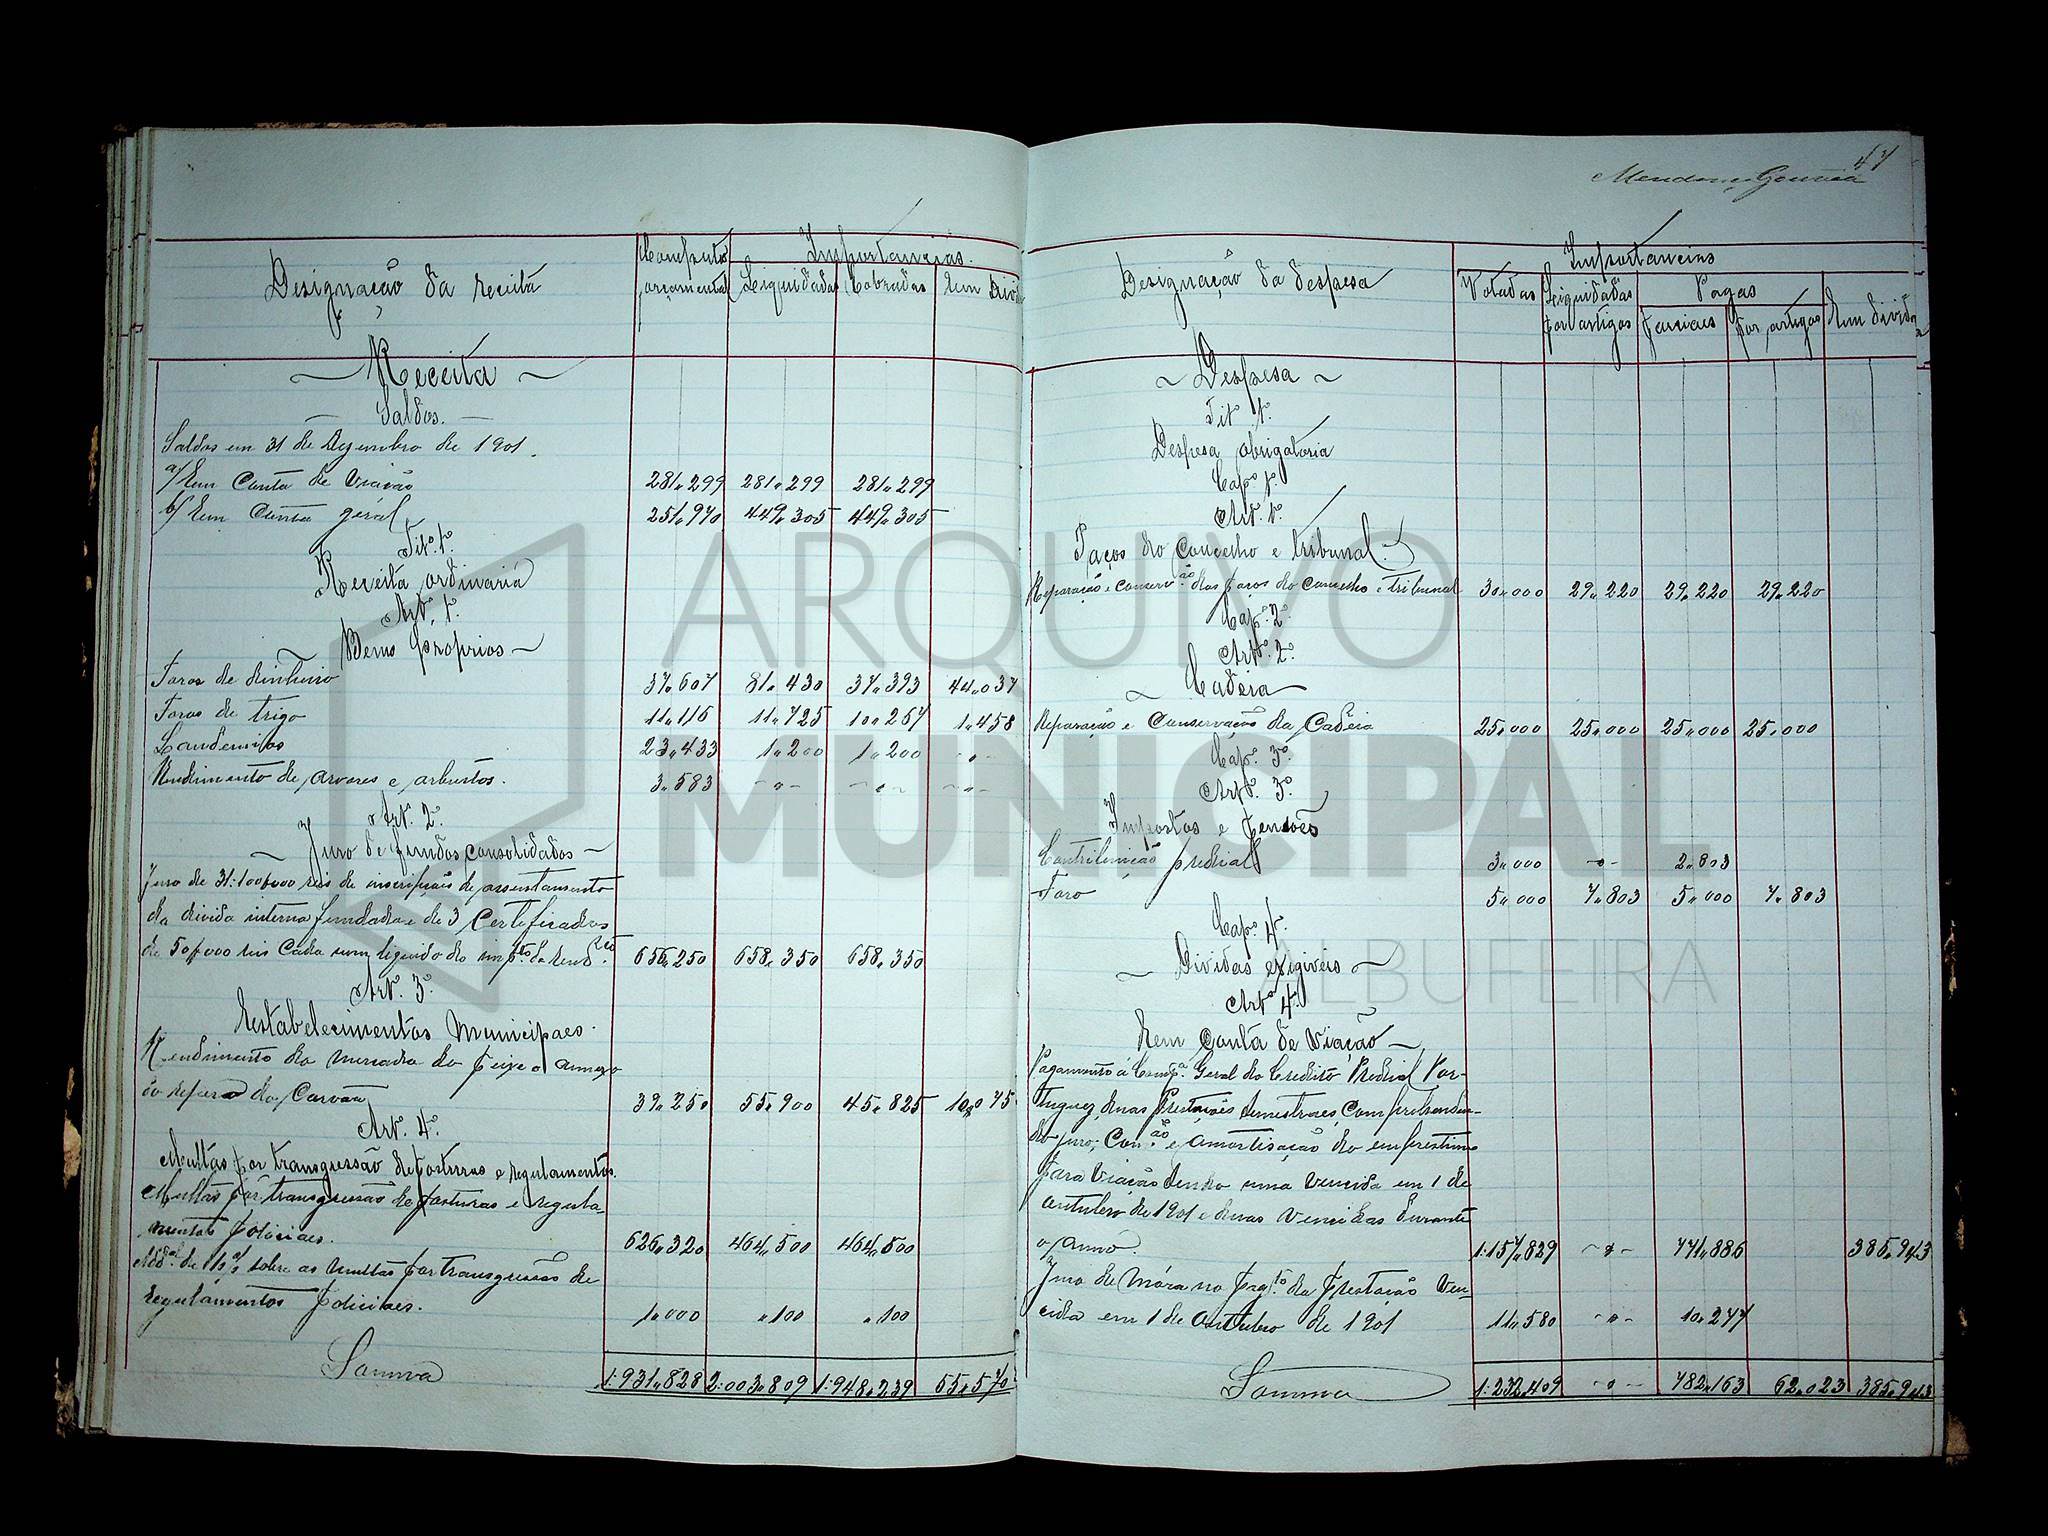 Designação da receita
Computo orçamental
Importancias.
Liquidadas
Cobradas
Em divida
Receita
Saldos.
Saldos em 31 de Dezembro de 1901.
a) Em Conta de Viação 281,299 281,299 281,299
b) Em Conta geral 251,970 449,305 449,305
Tit.º 1.º
Receita ordinaria
Art.º 1.º
Bens proprios
Foros de dinheiro 37,607 81,430 37,393 44,037
Foros de trigo 11,116 11,725 10,267 1,458
Laudemios 23,433 1,200 1,200 -"-
Rendimento de arvores e arbustos. 3,583 -"- -"- -"-
Art.º 2.º
Juro de fundos consolidados
Juro de 31:100$000 reis de inscripções de assentamento
da divida interna fundada e de 3 Certificados
de 50$000 reis Cada um liquido do imp.to de rend.º 656,250 658,350 658,350
Art.º 3.º
Estabelecimentos Municipaes.
Rendimento do mercado do peixe e annexo
do Carvão 39,250 55,900 45,825 10,075
Art.º 4.º
Multas por transgressão de posturas e regulamentos.
Multas por transgressão de posturas e regula-
mentos policiaes. 626,320 464,500 464,500
sobre as multas por transgressão de
regulamentos policiaes. 1,000 ,100 ,100
Somma 1:931,828 2:003,809 1:948,239 55,570
47
Mendonça Gouveia
Designação da despesa
Importancias
Votadas
Liquidadas por artigos
Pagas
Parciaes
Por artigos
Em divida
Despesa
Tit.º 1.º
Despesa obrigatoria
Cap.º 1.º
Art.º 1.º
Paços do Concelho e tribunal
Reparação e conserv.ão dos paços do Concelho e tribunal 30,000 29,220 29,220 29,220
Cap.º 2.º
Art.º 2.º
Cadeia
Reparação e Conservação da Cadeia 25,000 25,000 25,000 25,000
Cap.º 3.º
Art.º 3.º
Impostos e pensões
Contribuição predial 3,000 -"- 2,803
Foro 5,000 7,803 5,000 7,803
Cap.º 4.º
Dividas exigiveis
Art.º 4.º
Em Conta de Viação
Pagamento á Comp.ª Geral do Credito Predial Por-
tuguez, duas Prestações semestraes, Comprehenden-
do juro, Com.ão e amortisação do emprestimo
para Viação sendo uma Vencida em 1 de
outubro de 1901 e duas Vencidas durante
o anno. 1:157,829 -"- 771,886 385,943
Juro de Móra no pag.to da prestação Ven-
cida em 1 de Outubro de 1901 11,580 -"- 10,277
Somma 1:232,409 -"- 782,163 62,023 385,943
ARQUIVO
MUNICIPAL
ALBUFEIRA